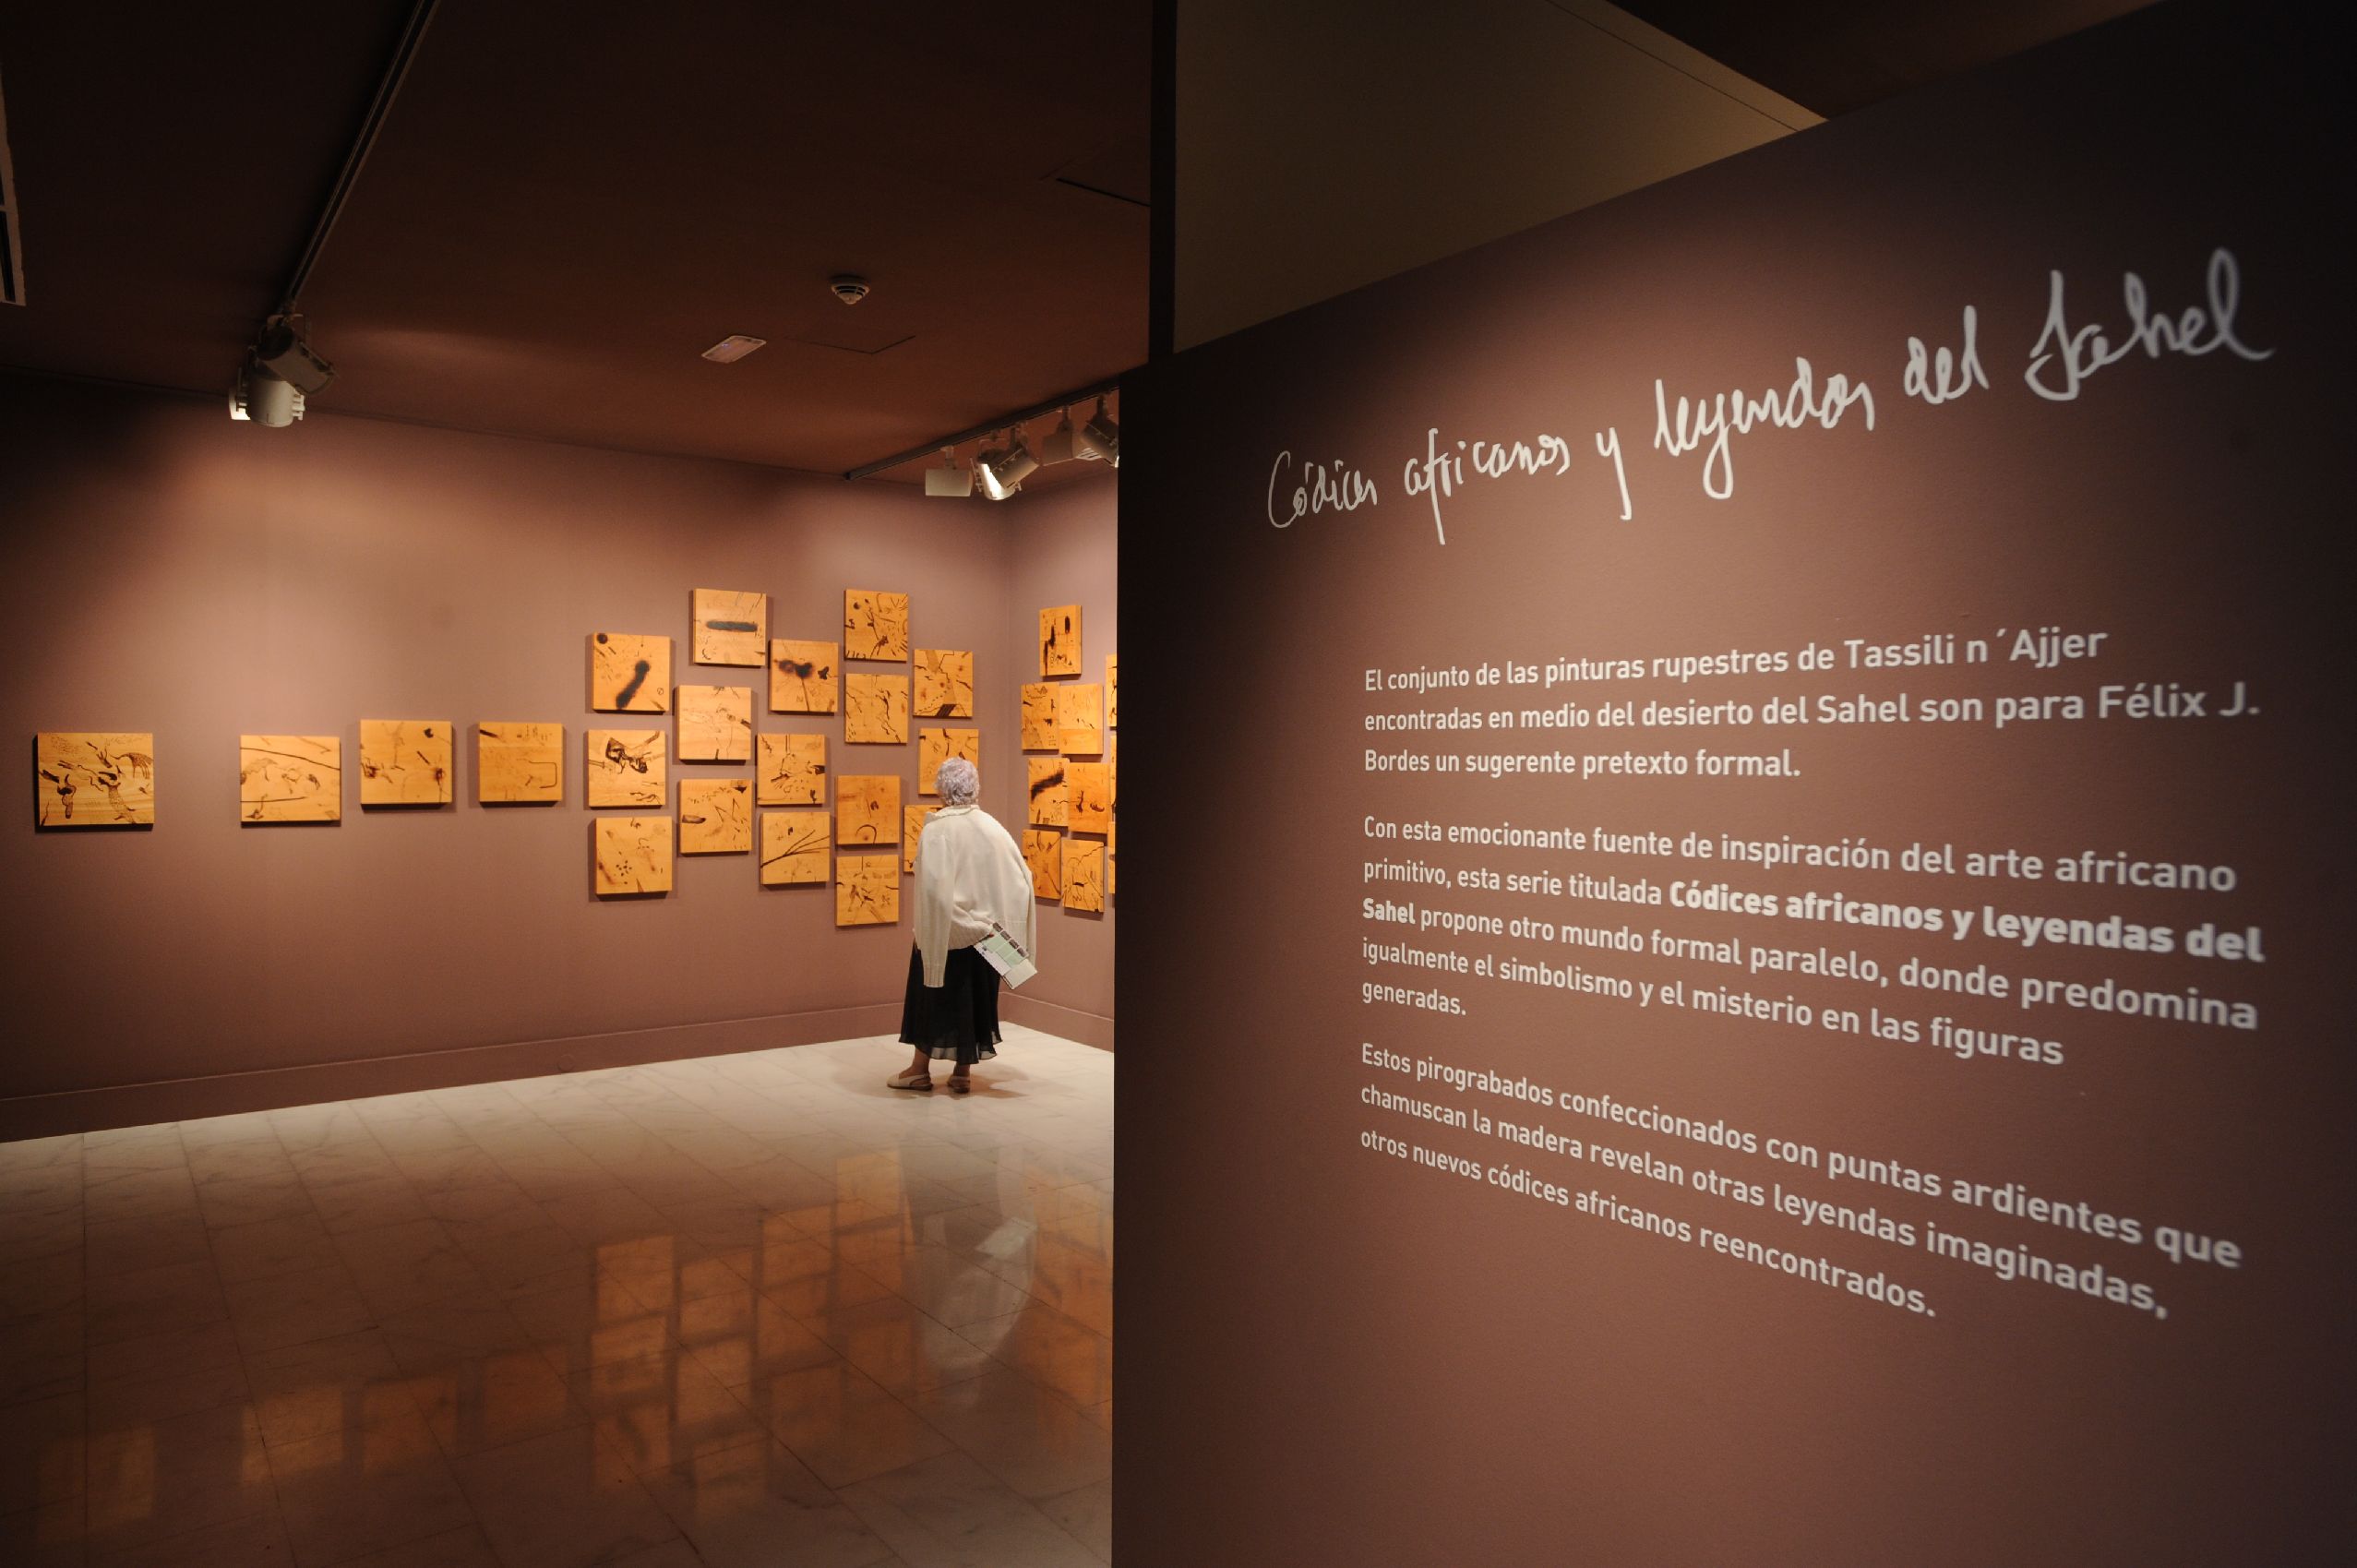 Códices africanos y leyendas del Sahel
El conjunto de las pinturas rupestres de Tassili n´Ajjer
encontradas en medio del desierto del Sahel son para Félix J.
Bordes un sugerente pretexto formal.
Con esta emocionante fuente de inspiración del arte africano
primitivo, esta serie titulada Códices africanos y leyendas del
Sahel propone otro mundo formal paralelo, donde predomina
igualmente el simbolismo y el misterio en las figuras
generadas.
Estos pirograbados confeccionados con puntas ardientes que
chamuscan la madera revelan otras leyendas imaginadas,
otros nuevos códices africanos reencontrados.